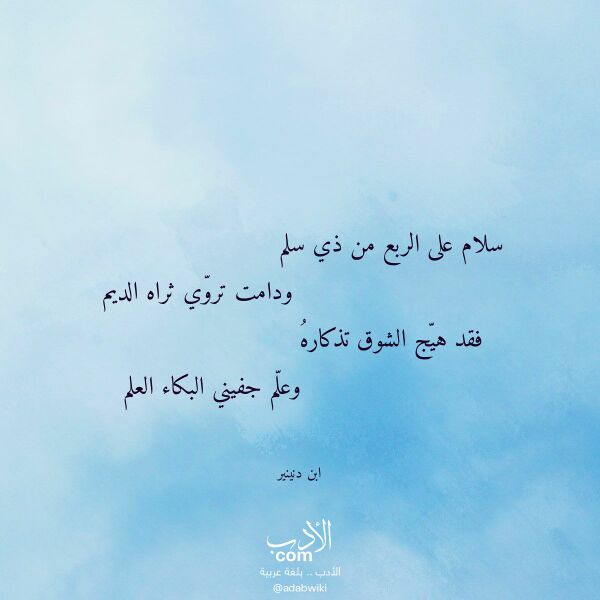 سلام على الربع من ذي سلم
ودامت تروّي ثراه الديم
فقد هيّج الشوق تذكارهُ
وعلّم جفيني البكاء العلم
ابن دنينير
الأدب
com
الأدب .. بلغة عربية
@adabwiki